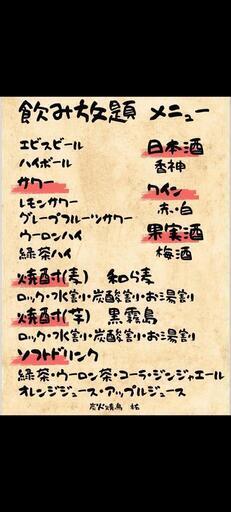 飲み放題 メニュー
エビスビール
ハイボール
サワー
レモンサワー
グレープフルーツサワー
ウーロンハイ
緑茶ハイ
日本酒
香神
ワイン
赤・白
果実酒
梅酒
焼酎(麦) 和ら麦
ロック・水割り・炭酸割り・お湯割り
焼酎(芋) 黒霧島
ロック・水割り・炭酸割り・お湯割り
ソフトドリンク
緑茶・ウーロン茶・コーラ・ジンジャエール
オレンジジュース・アップルジュース
炭火焼鳥